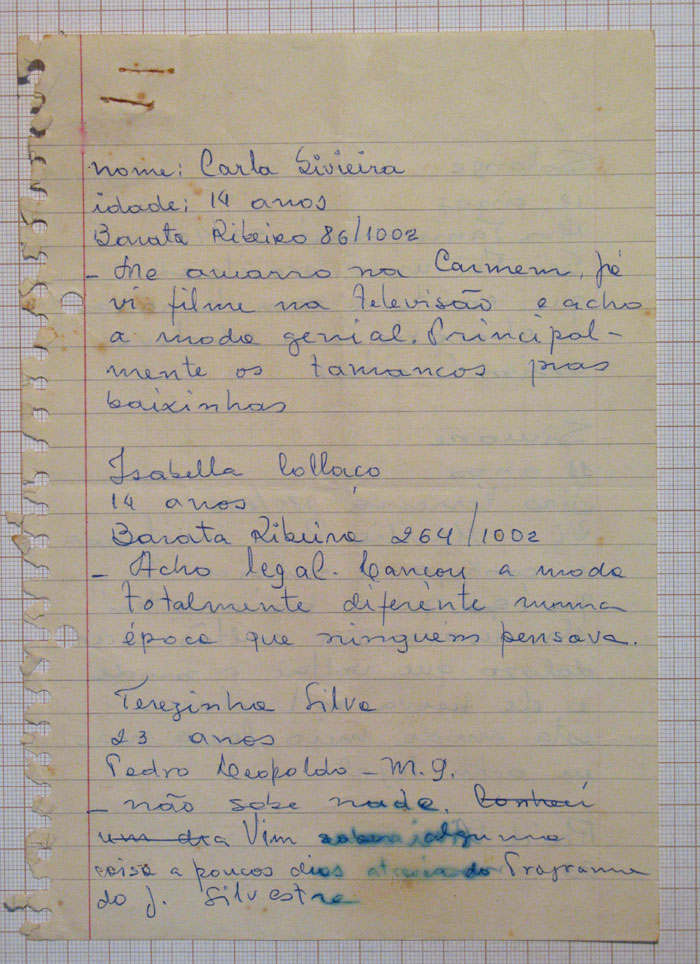 nome: Carla Sivieira
idade: 14 anos
Barata Ribeiro 86/1002
- Me amarro na Carmem, já
vi filme na televisão e acho
a moda genial. Principal-
mente os tamancos pras
baixinhas
Isabella Collaço
14 anos
Barata Ribeiro 264/1002
- Acho legal. Lançou a moda
totalmente diferente numa
época que ninguém pensava.
Terezinha Silva
23 anos
Pedro Leopoldo - M.G.
- não sabe nada. Conheci
um dia Vim saber alguma
coisa a poucos dias através do Programa
do J. Silvestre